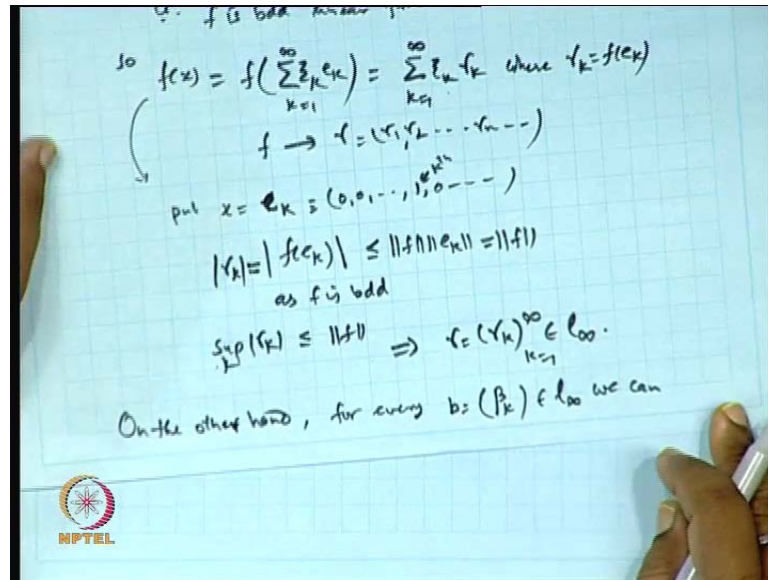 f is bdd linear
so f(x) = f(∑_{k=1}^{∞} ξ_k e_k) = ∑_{k=1}^{∞} ξ_k γ_k where γ_k = f(e_k)
f → γ = (γ_1, γ_2 ... γ_n --)
put x = e_k = (0, 0, .., 1, 0 - - - )
|γ_k| = |f(e_k)| ≤ ||f|| ||e_k|| = ||f||
as f is bdd
sup_k |γ_k| ≤ ||f|| ⇒ γ = (γ_k)_{k=1}^{∞} ∈ l_∞.
On the other hand, for every b = (β_k) ∈ l_∞ we can
NPTEL